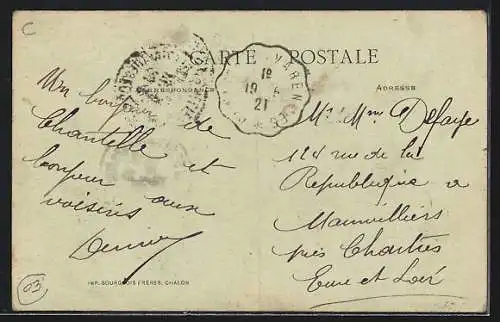 C
CARTE POSTALE
CORRESPONDANCE
ADRESSE
VARENNES
19
21
Un bonjour de
Chantelle et
bonjour aux
voisins
Mr Mme Defaye
124 rue de la
Republique a
Mainvilliers
près Chartres
Eure et Loir
IMP. BOURGEOIS FRÈRES, CHALON
03